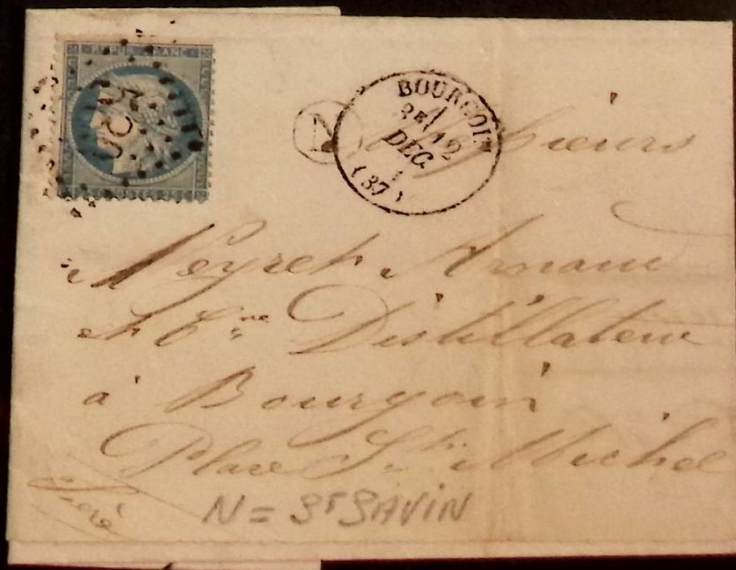 REPUB. FRANC.
POSTES
N
BOURGOIN
2E
12
DEC.
(37)
Messieurs
Veyret Arnaud
& Cie Distillateur
à Bourgoin
Place St. Michel
N = ST SAVIN